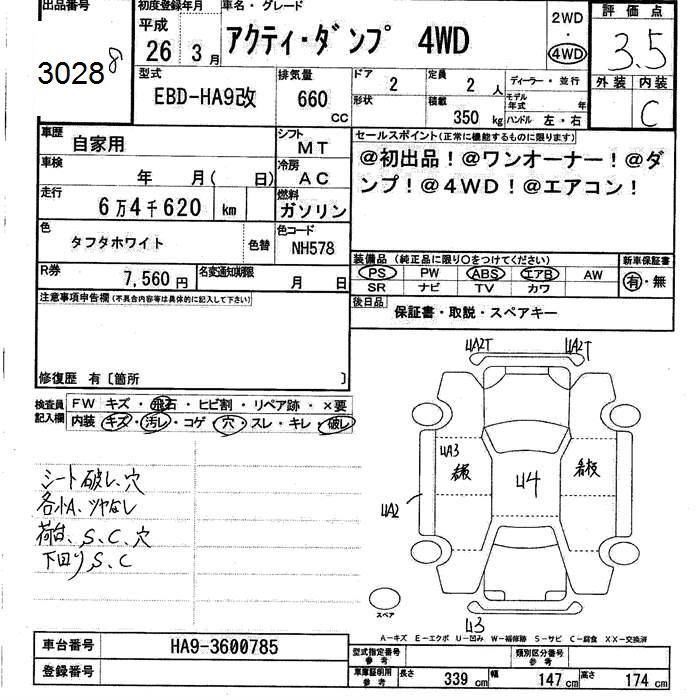 出品番号 初度登録年月 車名・グレード 2WD ・ 4WD 評価点
平成 26 3月 アクティ・ダンプ 4WD 3.5
3028 8
型式 排気量 ドア 定員 ディーラー・並行 外装 内装
EBD-HA9改 660 cc 2 2人 C
形状 積載 350kg モデル年式 年 ハンドル 左・右
車歴 自家用 シフト MT セールスポイント(正常に機能するものに限ります)
車検 年 月( 日) 冷房 AC @初出品!@ワンオーナー!@ダ
走行 6万4千620 km 燃料 ガソリン ンプ!@4WD!@エアコン!
色 タフタホワイト 色替 色コード NH578
装備品(純正品に限り○をつけてください) 新車保証書
R券 7,560円 名変通知期限 月 日 PS PW ABS エアB AW 有・無
SR ナビ TV カワ
注意事項申告欄(不具合内容等は具体的に記入して下さい) 後日品 保証書・取説・スペアキー
修復歴 有〔箇所 〕
検査員記入欄 FW キズ・飛石・ヒビ割・リペア跡・×要
内装 キズ・汚レ・コゲ・穴・スレ・キレ・破レ
シート破レ、穴
各小A、ツヤなし
荷台、S、C、穴
下回り、S、C
UA2T UA2T
UA3
U4
UA2
U3
スペア
A-キズ E-エクボ U-凹み W-補修跡 S-サビ C-腐食 XX-交換済
車台番号 HA9-3600785 型式指定番号 参考 類別区分番号 参考
登録番号 車庫証明用 参考 長さ 339cm 幅 147cm 高さ 174cm